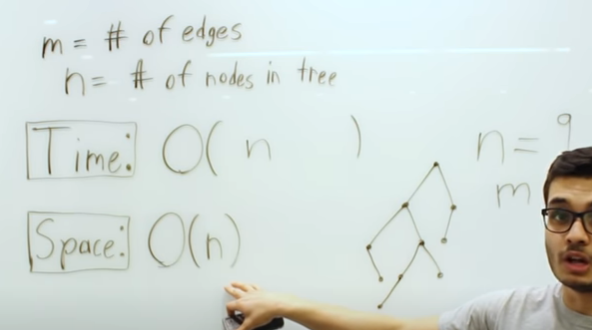 m = # of edges
n = # of nodes in tree
Time: O( n )
Space: O(n)
n = 9
m